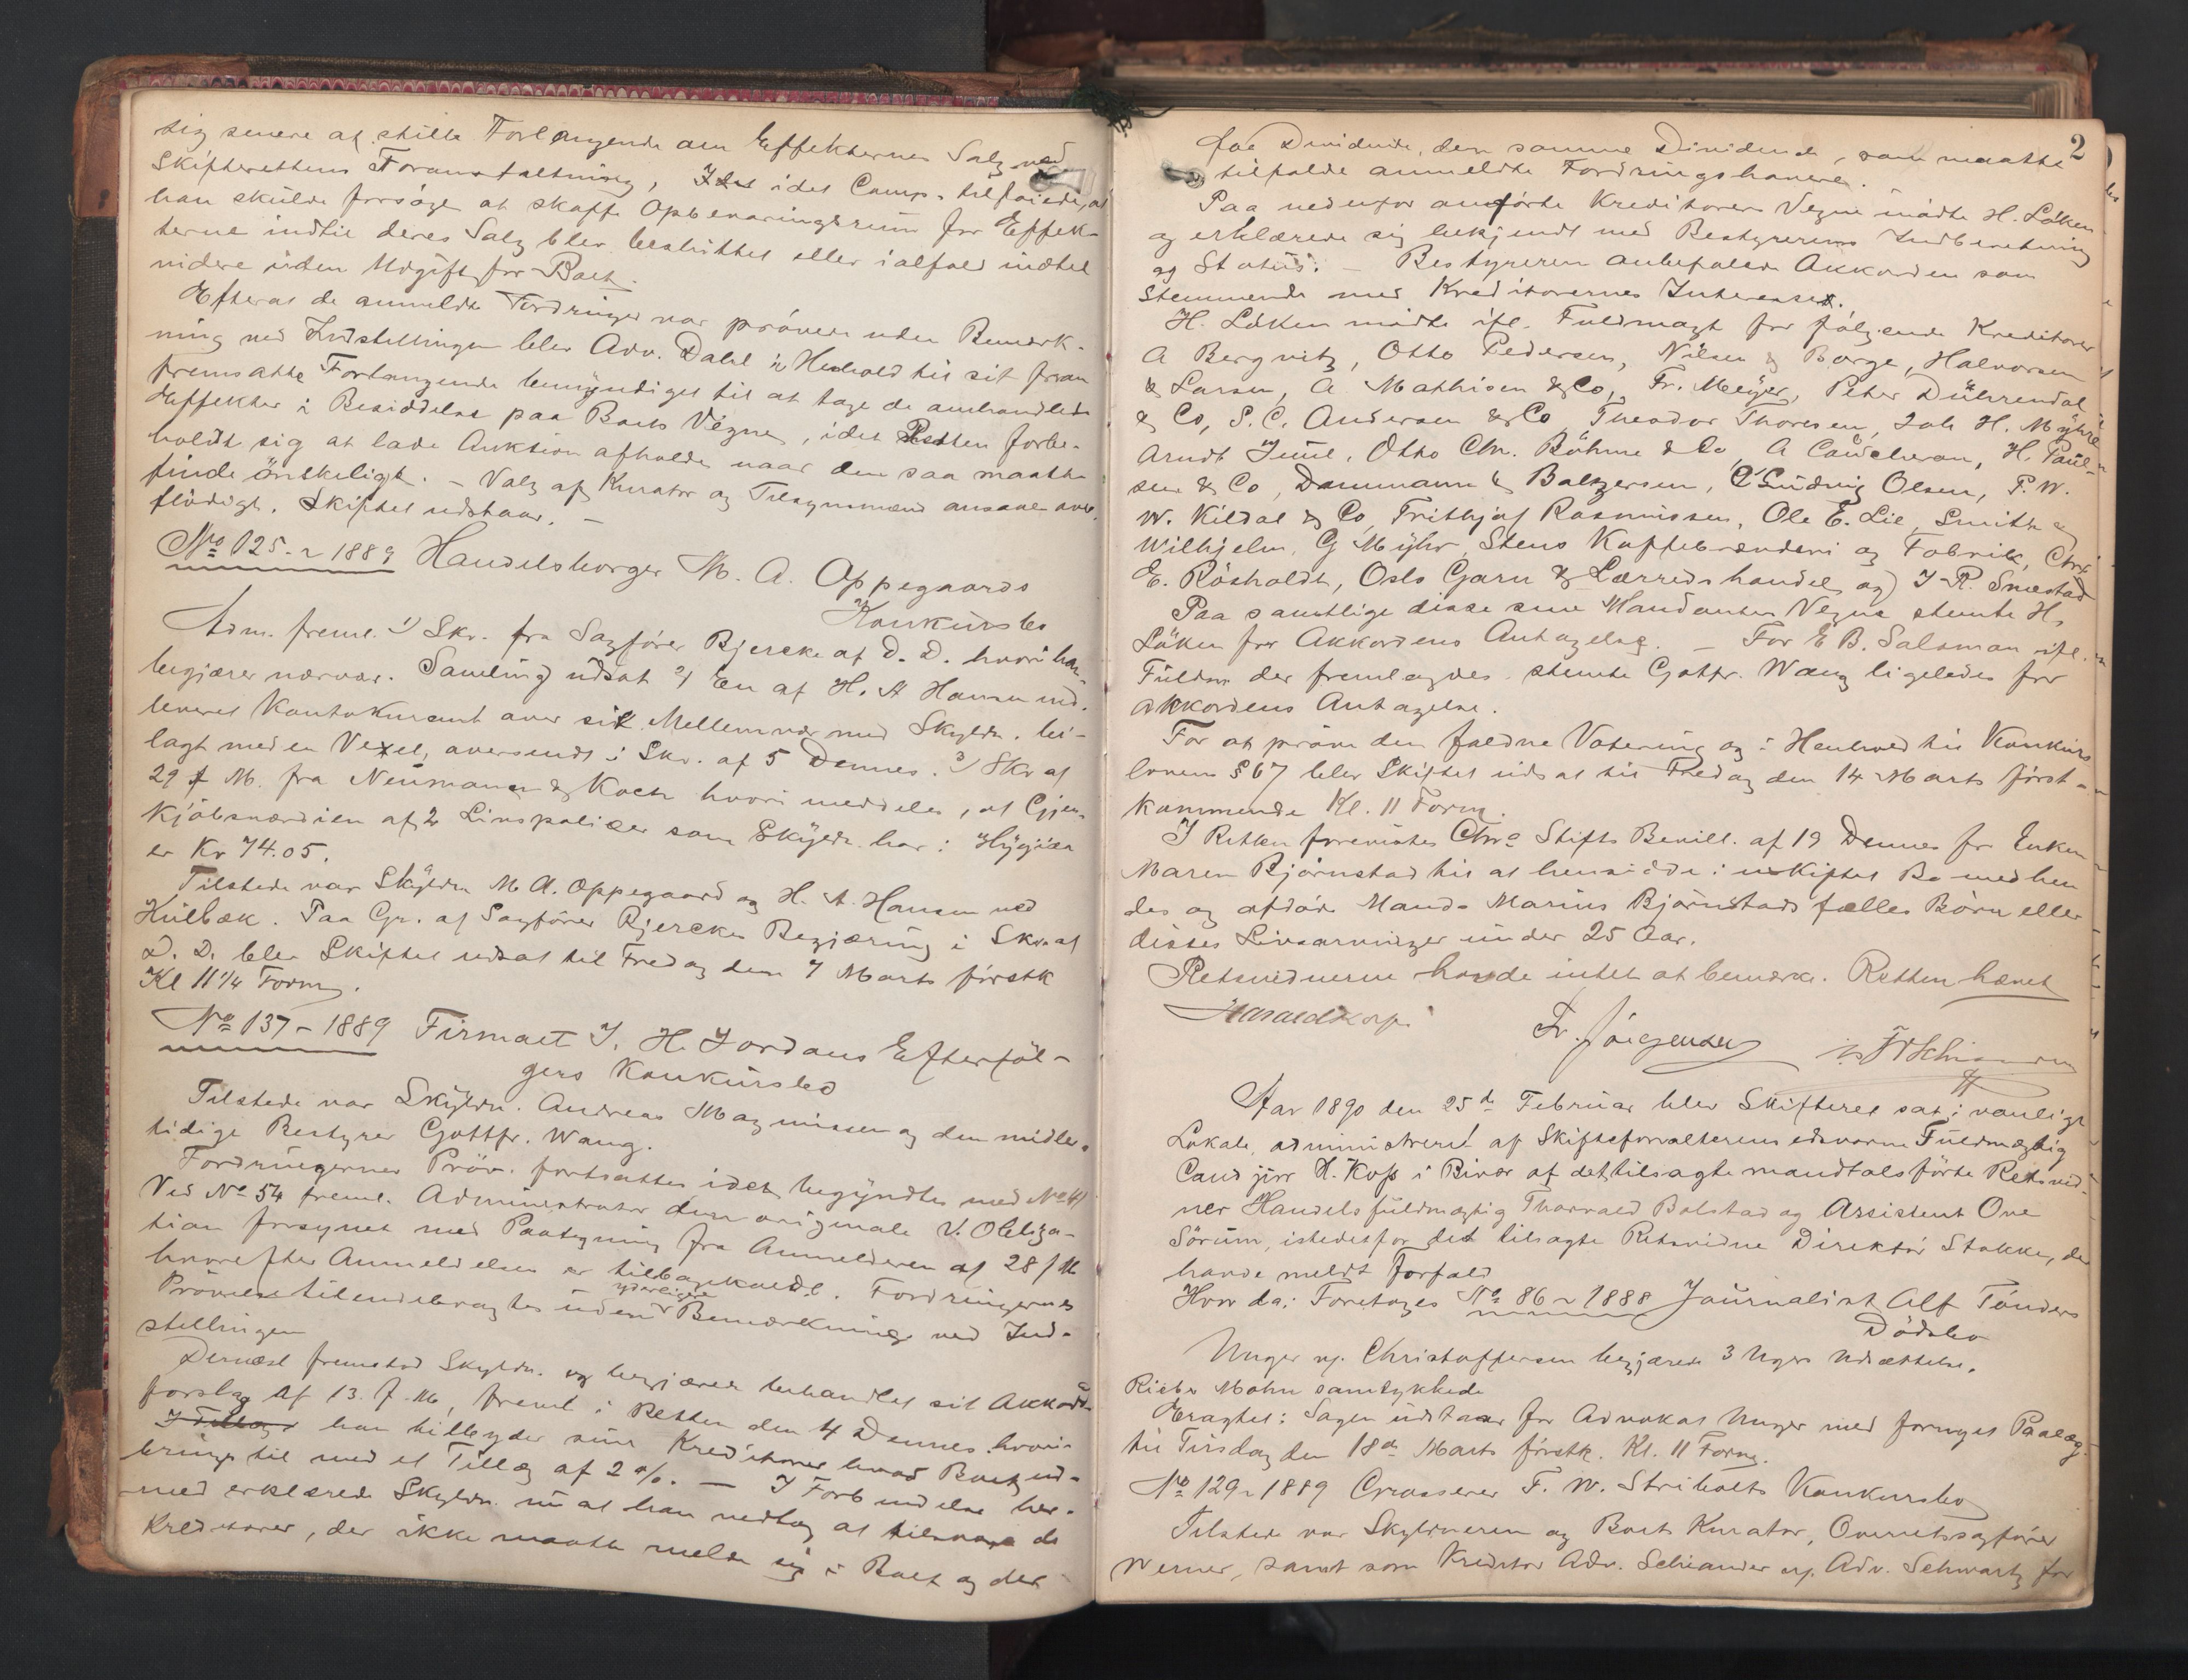 sig senere at stille Forlangende om Effekternes Salg ved
Skifterettens Foranstaltning, idet Comp. tilföiede, at
han skulde forsöge at skaffe Opbevaringsrum for Effek-
terne indtil deres Salg blev besluttet eller ialfald indtil
videre uden Udgift for Boet.
Efterat de anmeldte Fordringer var pröven uden Bemærk-
ning ved Indstillingen blev Adv. Dahl i Henhold til sit fram
fremsatte Forlangende bemyndiget til at tage de omhandlede
Effekter i Besiddelse paa Boets Vegne, idet Retten forbe-
holdt sig at lade Auktion afholde naar den saa maatte
finde önskeligt. - Valg af Kurator og Tilsynsmænd ansaaes over-
flödigt. Skiftet udstaar. -
No 125 - 1889 Handelsborger M. A. Oppegaards
Konkursbo
Adm. freml. 1) Skr. fra Sagförer Bjercke af D. D. hvori han
begjærer nærvær. Samling udsat 2) En af H. A Hansen ind-
leveret Kontokurant over sit Mellemvær med Skyldn. bi-
lagt med en Vexel, oversendt i Skr. af 5 Dennes. 3) Skr af
29 f M. fra Neumann & Koch hvori meddeles, at Gjen-
kjöbsværdien af 2 Livspoliser som Skyldn. har i Hygiæa
er Kr 74.05.
Tilstede var Skyldn M A. Oppegaard og H. A. Hansen ved
Hulbæk. Paa Gr. af Sagförer Bjerckes Begjæring i Skr. af
D. D. blev Skiftet udsat til Fredag den 7 Marts förstk
Kl 11 1/4 Form.
No 137 - 1889 Firmaet J. H. Jordans Efterföl-
gers Konkursbo
Tilstede var Skyldn. Andreas Magnussen og den midler-
tidige Bestyrer Gottfr. Wang.
Fordringernes Pröv. fortsattes idet begyndtes med No 41
Ved No 54 freml. Administrator den originale V. Obliga-
tion forsynet med Paategning fra Anmelderen af 28 f M
hvorefter Anmeldelsen er tilbagekaldt. Fordringernes
Prövelse tilendebragtes uden yderligere Bemærkning ved Ind-
stillingen
Dernæst fremstod Skyldn. og begjærer behandlet sit Akkord-
forslag af 13. f. M, freml i Retten den 4 Dennes hvori-
han tilbyder sine Kreditorer hvad Boet ud-
bringe til med et Tillæg af 2 %. - I Forbindelse her-
med erklærede Skyldn. nu at han vedtog at tilsvare de
Kreditorer, der ikke maatte melde sig i Boet og der
2
faa Dividende, den samme Dividende, som maatte
tilfalde anmeldte Fordringshavere.
Paa nedenfor anförte Kreditorers Vegne mödte H. Löken
og erklærede sig bekjendt med Bestyrerens Indberetning
og Status. - Bestyreren anbefalede Akkorden som
stemmende med Kreditorernes Interesser.
H. Löken mödte ifl. Fuldmagt for fölgende Kreditorer
A Bergwitz, Otto Pedersen, Nilsen & Borge, Halvorsen
& Larsen, A Mathisen & Co, Fr. Meyer, Peter Dührendal
& Co, S. C. Andersen & Co Theodor Thoresen, Joh H. Myhre
Arndt Juul, Otto Chr. Böhme & Co A Cawcheron, H. Paul-
sen & Co, Dammann & Baltzersen, Ludvig Olsen, P. W.
W. Kildal & Co Frithjof Rasmussen, Ole E. Lie, Smith &
Wilhjelm, G Myhr, Stens Kaffebrænderi og Fabrik, Chr
E. Rösholdt, Oslo Garn & Lærredshandel og J. R. Smestad
Paa samtlige disse sine Mandanters Vegne stemte H.
Löken for Akkordens Antagelse. - For E B. Salomon ifl.
Fuldm der fremlagdes stemte Gottfr. Wang ligeledes for
Akkordens Antagelse.
For at pröve den faldne Votering og i Henhold til Konkurs
lovens § 67 blev Skiftet udsat til Fredag den 14 Marts först-
kommende Kl. 11 Form.
I Retten forevistes Chra Stifts Bevill. af 19 Dennes for Enken
Maren Björnstad til at hensidde i uskiftet Bo med hen
des og afdöde Mands Marius Björnstads fælles Börn eller
disses Livsarvinger under 25 Aar.
Retsvidnerne havde intet at bemærke. Retten hævet
Fr. Jörgensen
Aar 1890 den 25de Februar blev Skifteret sat i vanligt
Lokale, administreret af Skifteforvalterens edsvorne Fuldmægtig
Cand jur H. Koss i Bivær af det tilsagte mandtalsförte Retsvid-
ner Handelsfuldmægtig Thorvald Bolstad og Assistent Ove
Sörum, istedetfor det tilsagte Retsvidne Direktör Stokke, der
havde meldt forfald
Hvor da: Foretoges No 86 - 1888 Journalist Alf Tönders
Dödsbo
Unger v. Christoffersen begjærede 3 Ugers Udsættelse.
Rieber Mohn samtykkede
Eragtet: Sagen udstaar for Advokat Unger med fornyet Paalæg
til Tirsdag den 18de Marts förstk. Kl. 11 Form.
No 129 - 1889 Grosserer F. W. Stribolts Konkursbo
Tilstede var Skyldneren og Boets Kurator, Overretssagförer
Werner, samt som Kreditor Adv. Schiander v. Adv. Schwartz for